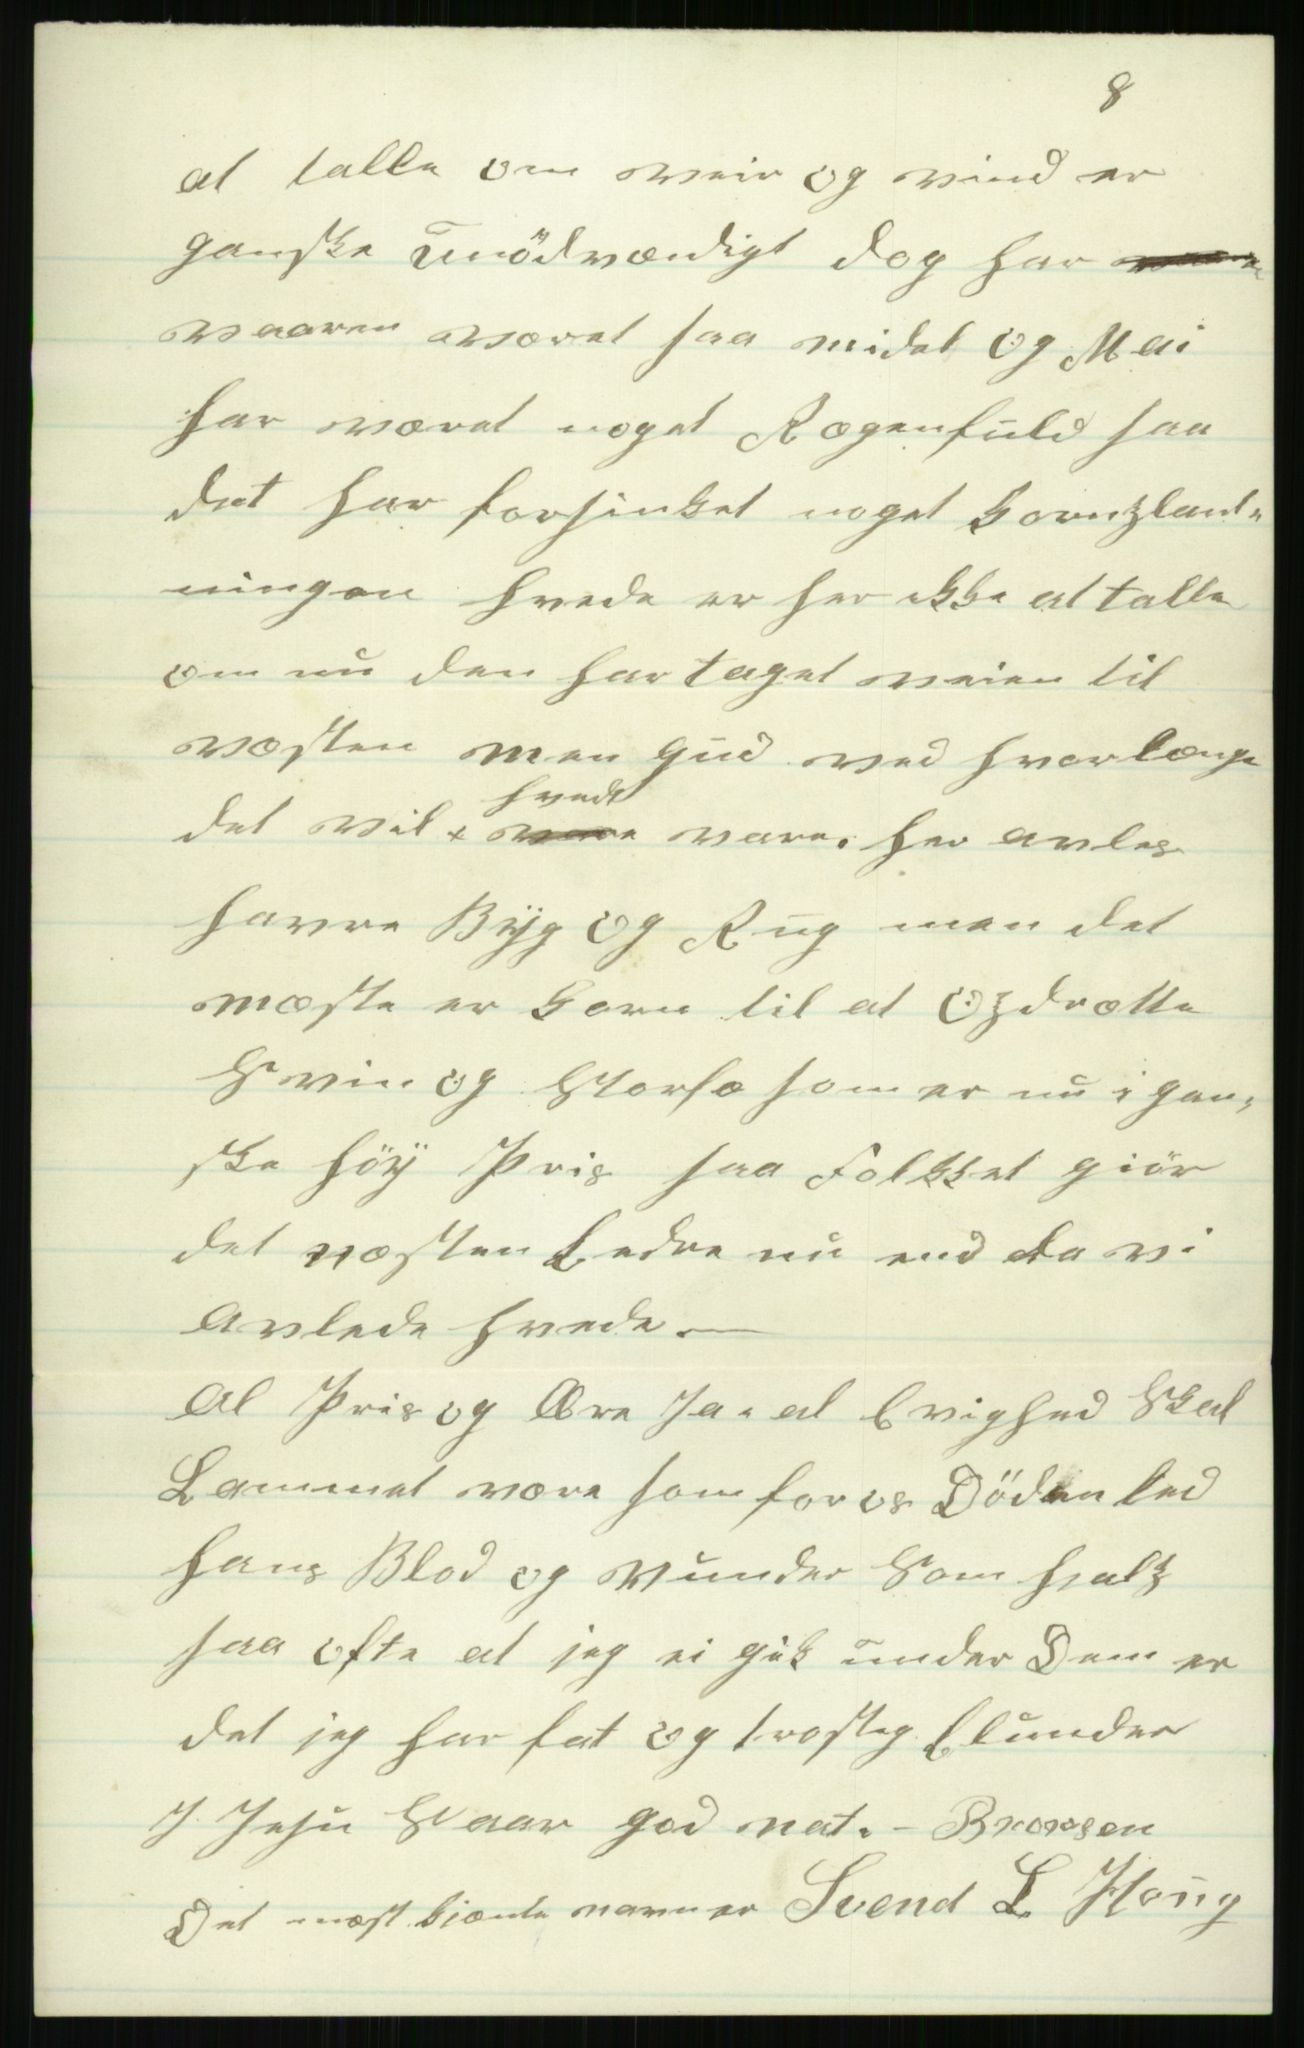 8
at talle om veir og vind er
ganske Unödvændigt dog har
vaaren været saa midel og Mai
har været noget Regenfuld saa
det har forsinket noget Kornplant-
ningen hvede er her ikke at talle
om nu den har taget veien til
væsten men Gud ved hvorlænge
det vil hvede vare. her avles
havre Byg og Rug men det
mæste er Korn til at Opdrætte
Svin og Storfæ som er nu i gan-
ske höy Pris saa Folkket giör
det næsten bedre nu end da vi
Avlede hvede. —
Al Pris og Ære Ja. al Evighed Skal
Lammet være som for os Döden led
hans Blod og Vunder Som hialp
saa ofte at jeg ei gik under Dem er
det jeg har fat og trostig blunder
I Jesu Saar god nat. - Brorsen
Det mæst kjænte navn er Svend L Houg